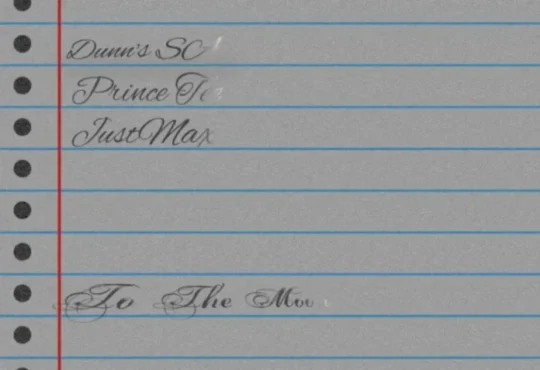 Dunn's SC
Prince
JustMax
To The